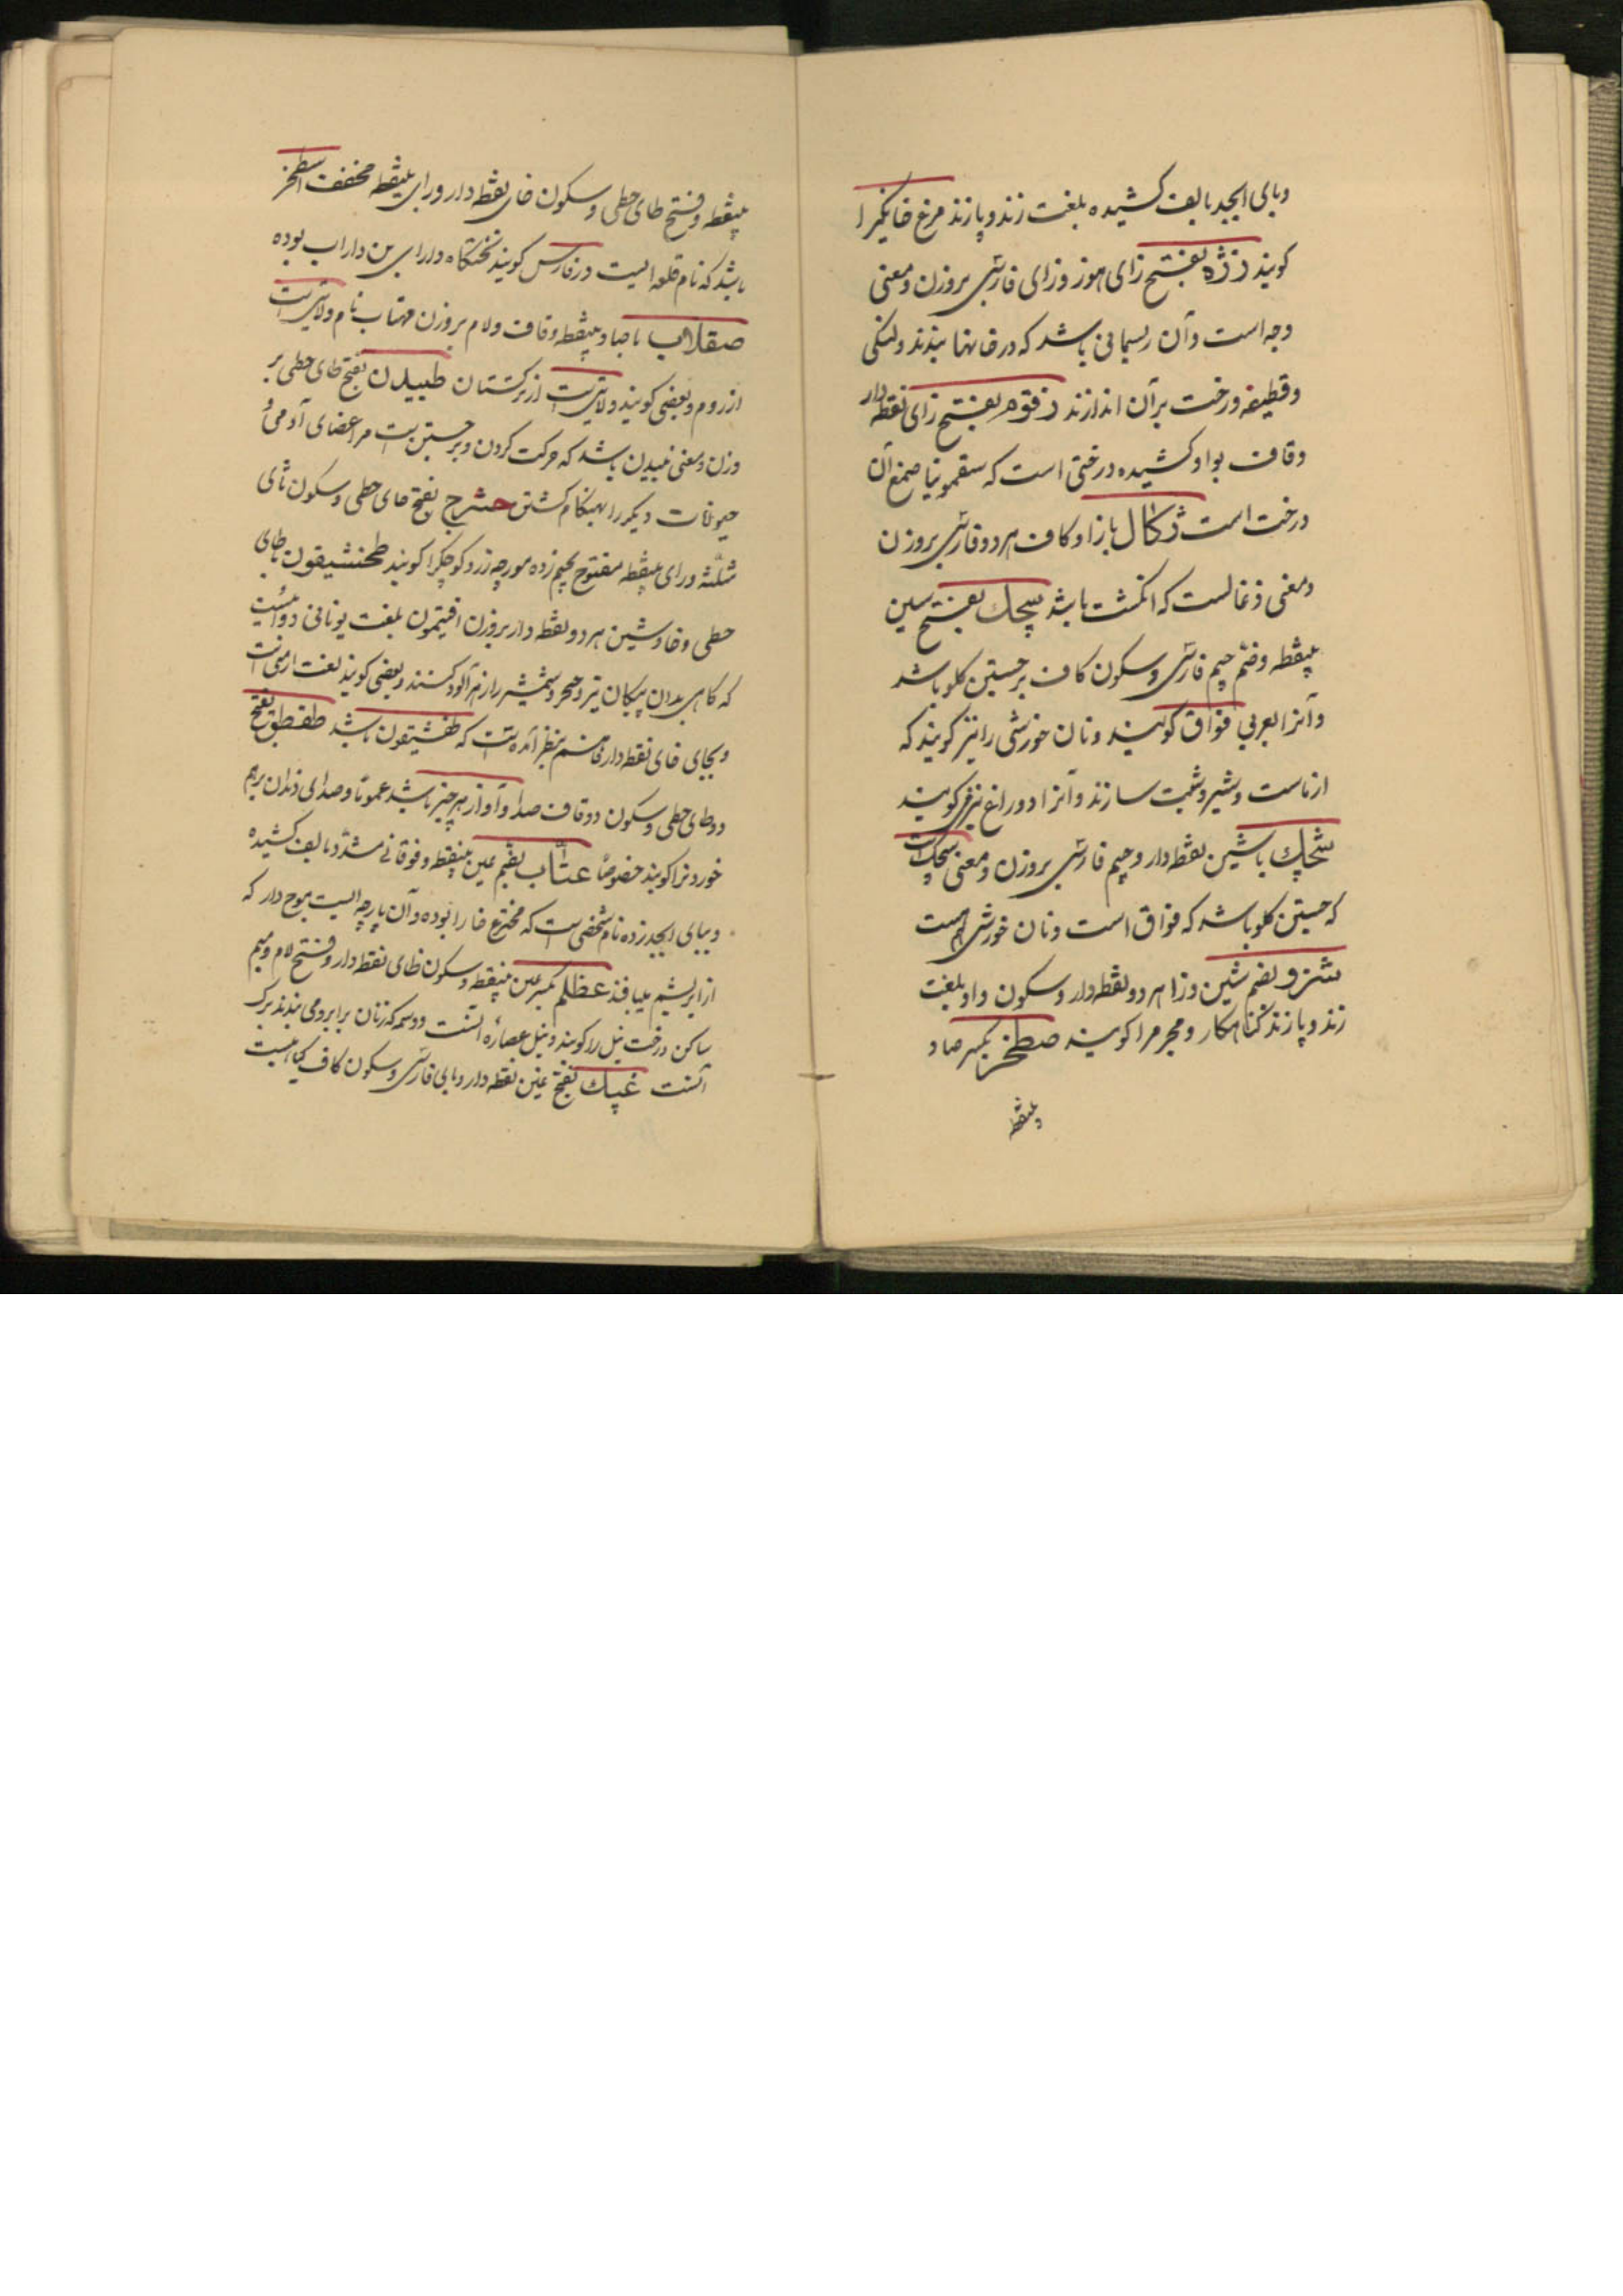 وبای ابجد بالف کشیده بلغت زند و پازند مرغ خانگیرا
کویند زژه بفتح زای هوز و زای فارسی بروزن و معنی
وجه است وآن ریسمانی باشد که در خانها بندند و لنکی
وقطیفه و رخت برآن اندازند زقوم بفتح زای نقطه دار
وقاف بواو کشیده درختی است که سقمونیا صمغ آن
درخت است ژکال بازا و کاف هر دو فارسی بروزن
ومعنی زغالست که انکشت باشد سچک بفتح سین
بینقطه وضم جیم فارسی وسکون کاف برجستن کلو باشد
وآنرا بعربی فواق کویند ونان خورشی را نیز کویند که
از ماست وشیر وشبت سازند وآنرا دوراغ نیز کویند
شچک با شین نقطه دار وجیم فارسی بروزن ومعنی سچک است
که جستن کلو باشد که فواق است ونان خورشی هست
شزو بضم شین وزا هر دو نقطه دار وسکون واو بلغت
زند وپازند کناهکار ومجرم را کویند صطخر بکسر صاد
بینقطه
بینقطه وفتح طای حطی وسکون خای نقطه دار ورای بینقطه مخفف اسطخر
باشد که نام قلعه ایست در فارس کویند تختکاه دارای بن داراب بوده
صقلاب با صاد بینقطه وقاف ولام بروزن مهتاب نام ولایتی است
از روم وبعضی کویند ولایتی است از ترکستان طبیدن بفتح طای حطی بر
وزن ومعنی تبیدن باشد که حرکت کردن وبرجستن است مر اعضای آدمی و
حیوانات دیکر را بهنکام کشتن حشرج بفتح حای حطی وسکون ثای
مثلثه ورای بینقطه مفتوح بجیم زده مورچه زرد کوچکرا کویند طخشیقون باطای
حطی وخا وشین هر دو نقطه دار بروزن افتیمون بلغت یونانی دوائیست
که کاهی بدان پیکان تیر وخنجر وشمشیر را زهرآلود کنند وبعضی کویند لغت ارمنی است
وبجای خای نقطه دار فا هم بنظر آمده است که طفشیقون باشد طقطق بفتح
دو طای حطی وسکون دو قاف صدا وآواز هر چیز باشد عموماً وصدای دندان برهم
خوردنرا کویند خصوصاً عتّاب بضم عین بینقطه وفوقانی مشدد بالف کشیده
وببای ابجد زده نام شخصی است که مخترع خارا بوده وآن پارچه ایست موج دار که
از ابریشم میبافند عظلم بکسر عین بینقطه وسکون ظای نقطه دار وفتح لام ومیم
ساکن درخت نیل را کویند ونیل عصاره آنست ووسمه که زنان برابرو می بندند برک
آنست غپک بفتح غین نقطه دار وبای فارسی وسکون کاف کیاهیست